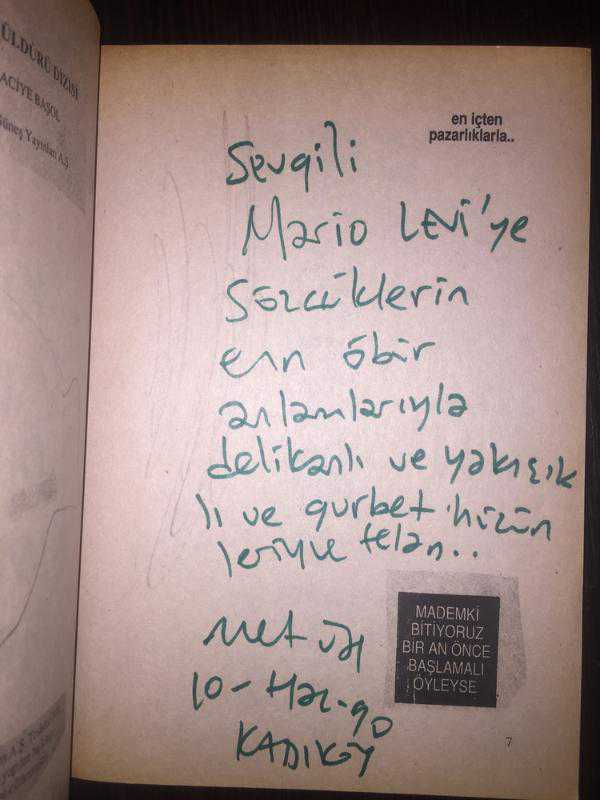 ÜLDÜRÜ DİZİSİ
ACİYE BAŞOL
Güneş Yayınları A.Ş.
en içten
pazarlıklarla..
Sevgili
Mario LEVİ'ye
Sözcüklerin
en öbür
anlamlarıyla
delikanlı ve yakışık
lı ve gurbet hüzün
leriyle felan..
Met Üst
10-Haz-90
KADIKÖY
MADEMKİ
BİTİYORUZ
BİR AN ÖNCE
BAŞLAMALI
ÖYLEYSE
7